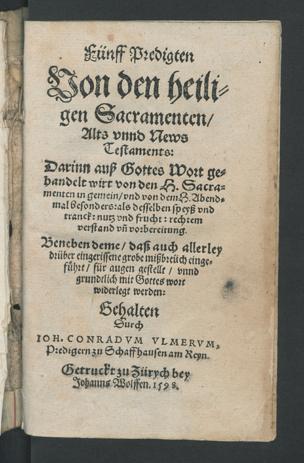 Fünff Predigten
Von den heili-
gen Sacramenten/
Alts vnnd News
Testaments:
Darinn auß Gottes Wort ge-
handelt wirt von den H. Sacra-
menten in gemein/ vnd von dem H. Abend-
mal besonders: als desselben speyß vnd
tranck: nutz vnd frucht: rechtem
verstand vñ vorbereitung.
Beneben deme/ daß auch allerley
drüber eingerissene grobe mißbreüch einge-
führt/ für augen gestellt/ vnnd
grundtlich mit Gottes wort
widerlegt werden:
Gehalten
Durch
IOH. CONRADVM VLMERVM,
Predigern zu Schaffhausen am Reyn.
Getruckt zu Zürych bey
Johanns Wolffen. 1598.